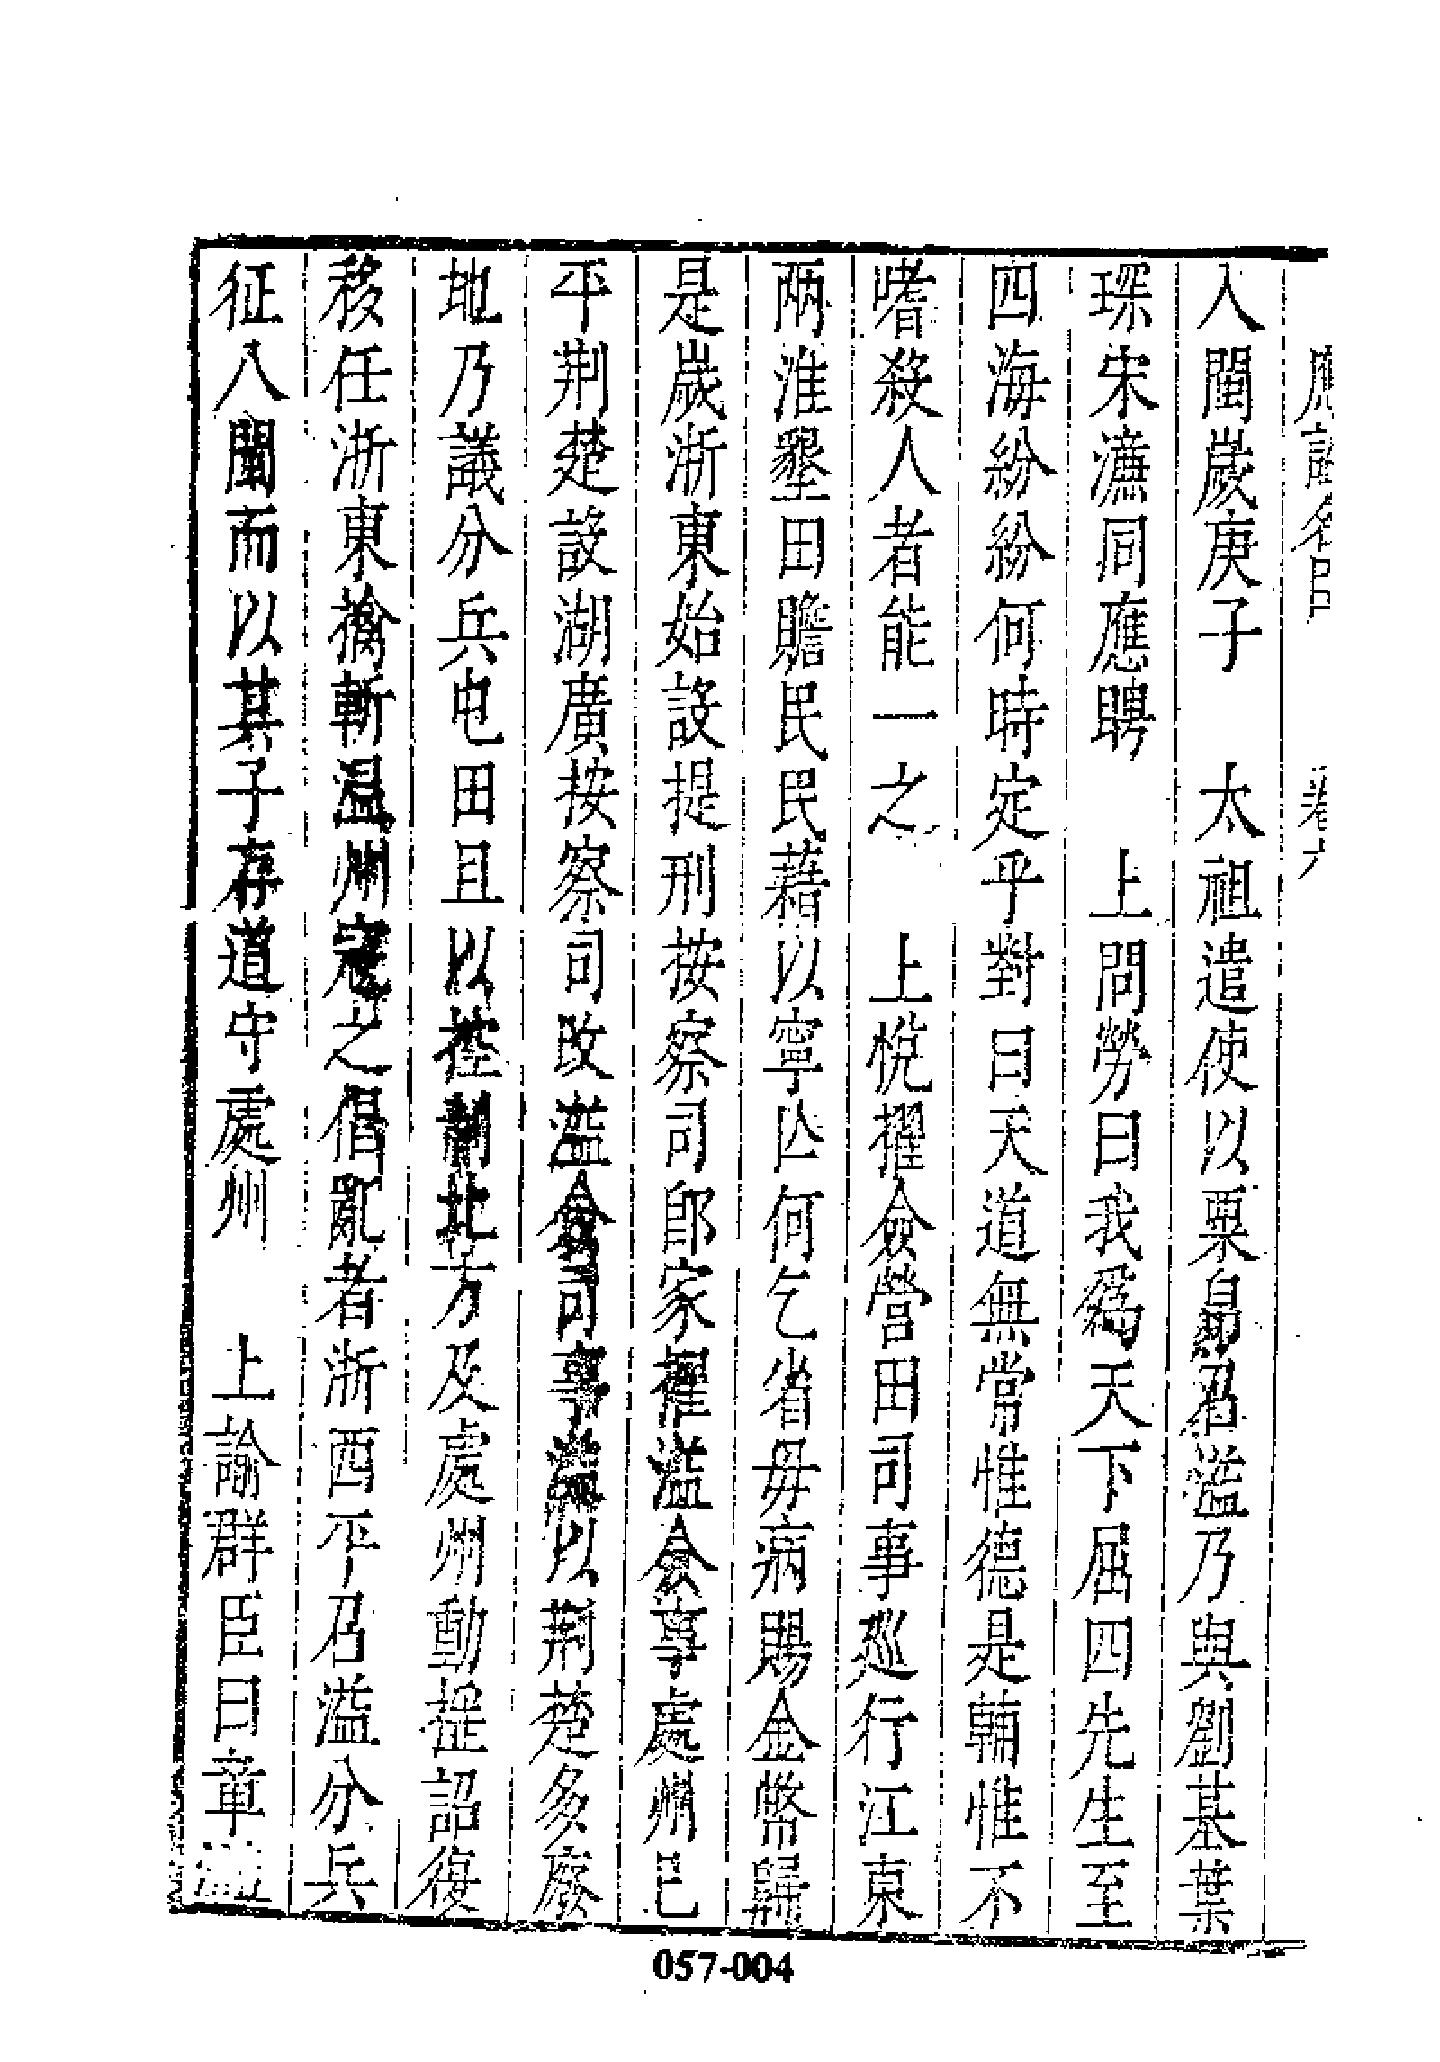 卷六
入閩歲庚子　太祖遣使以粟帛召溢乃與劉基葉
琛宋濂同應聘　上問勞曰我爲天下屈四先生至
四海紛紛何時定乎對曰天道無常惟德是輔惟不
嗜殺人者能一之　上悅擢僉營田司事廵行江東
兩淮墾田贍民民藉以寧亾何乞省毋病賜金幣歸
是歲浙東始設提刑按察司卽家擢溢僉事處州已
平荆楚設湖廣按察司改溢僉司事溢以荆楚多廢
地乃議分兵屯田且以控制北方及處州動搖詔復
移任浙東擒斬温州宼之倡亂者浙西平召溢分兵
征入閩而以其子存道守處州　上諭群臣曰章溢
057-004